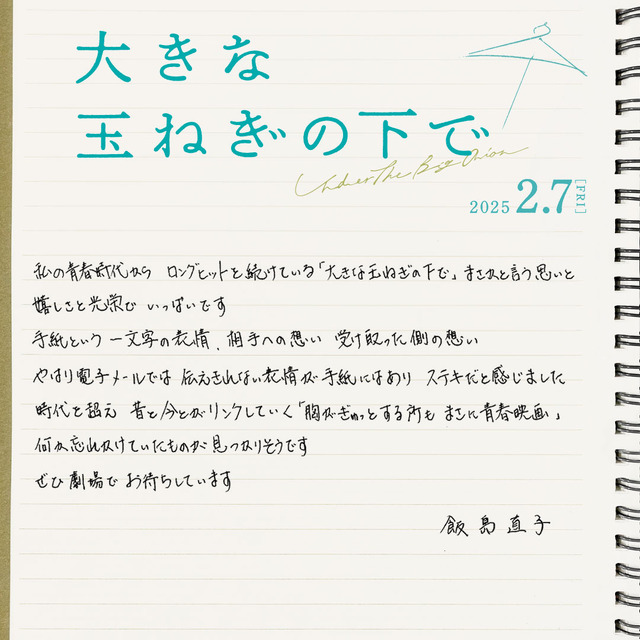 大きな
玉ねぎの下で
Under The Big Onion
2025 2.7 [FRI]
私の青春時代から ロングヒットを続けている「大きな玉ねぎの下で」まさかと言う思いと
嬉しさと光栄で いっぱいです
手紙という 一文字の表情、相手への想い 受け取った側の想い
やはり電子メールでは 伝えきれない表情が手紙にはあり ステキだと感じました
時代を超え 昔と今とがリンクしていく「胸がぎゅっとする所も まさに青春映画」
何か忘れかけていたものが 見つかりそうです
ぜひ劇場で お待ちしています
飯島直子